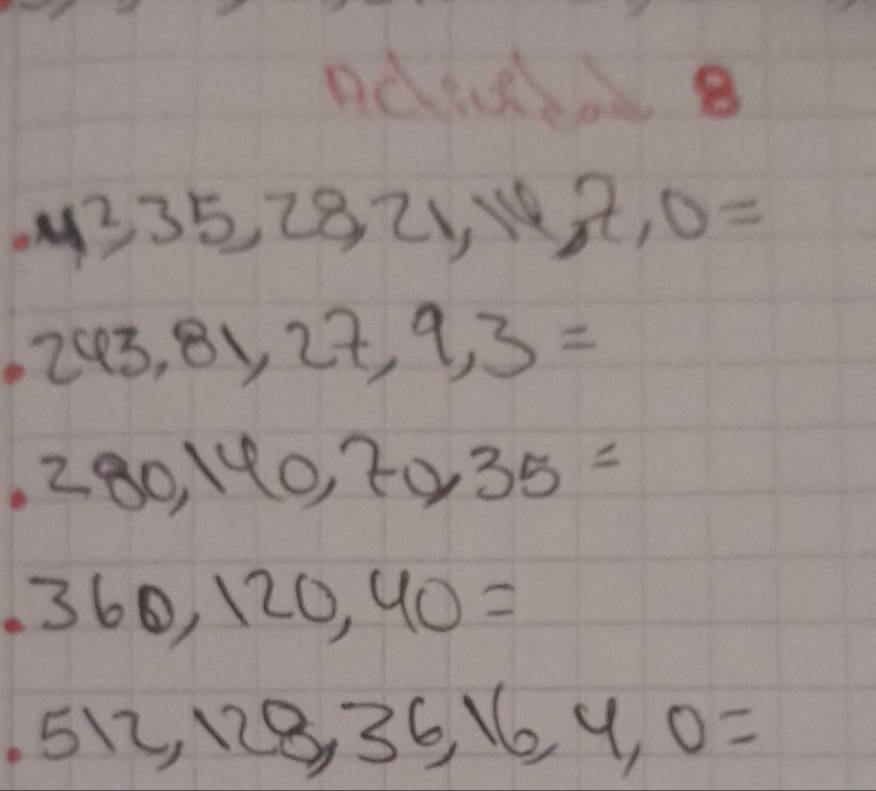 Actividad 8
. 42, 35, 28, 21, 14, 7, 0 =
. 243, 81, 27, 9, 3 =
. 280, 140, 70, 35 =
. 360, 120, 40 =
. 512, 128, 36, 16, 4, 0 =